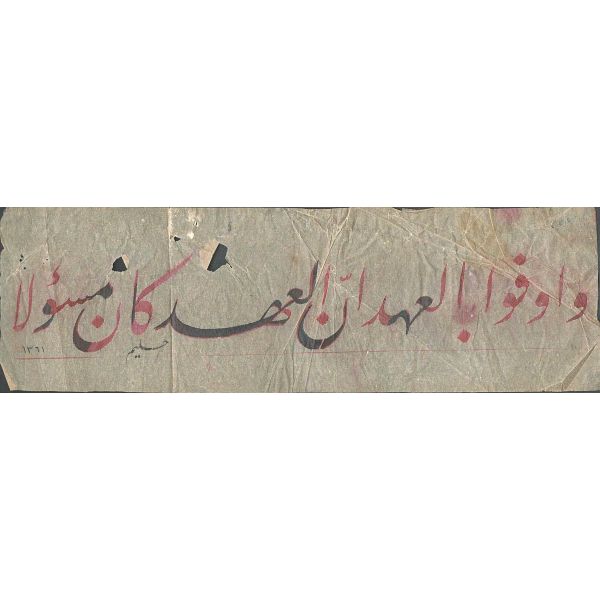 واوفوا بالعهد انّ العهد كان مسؤولا
حليم
١٣٦١